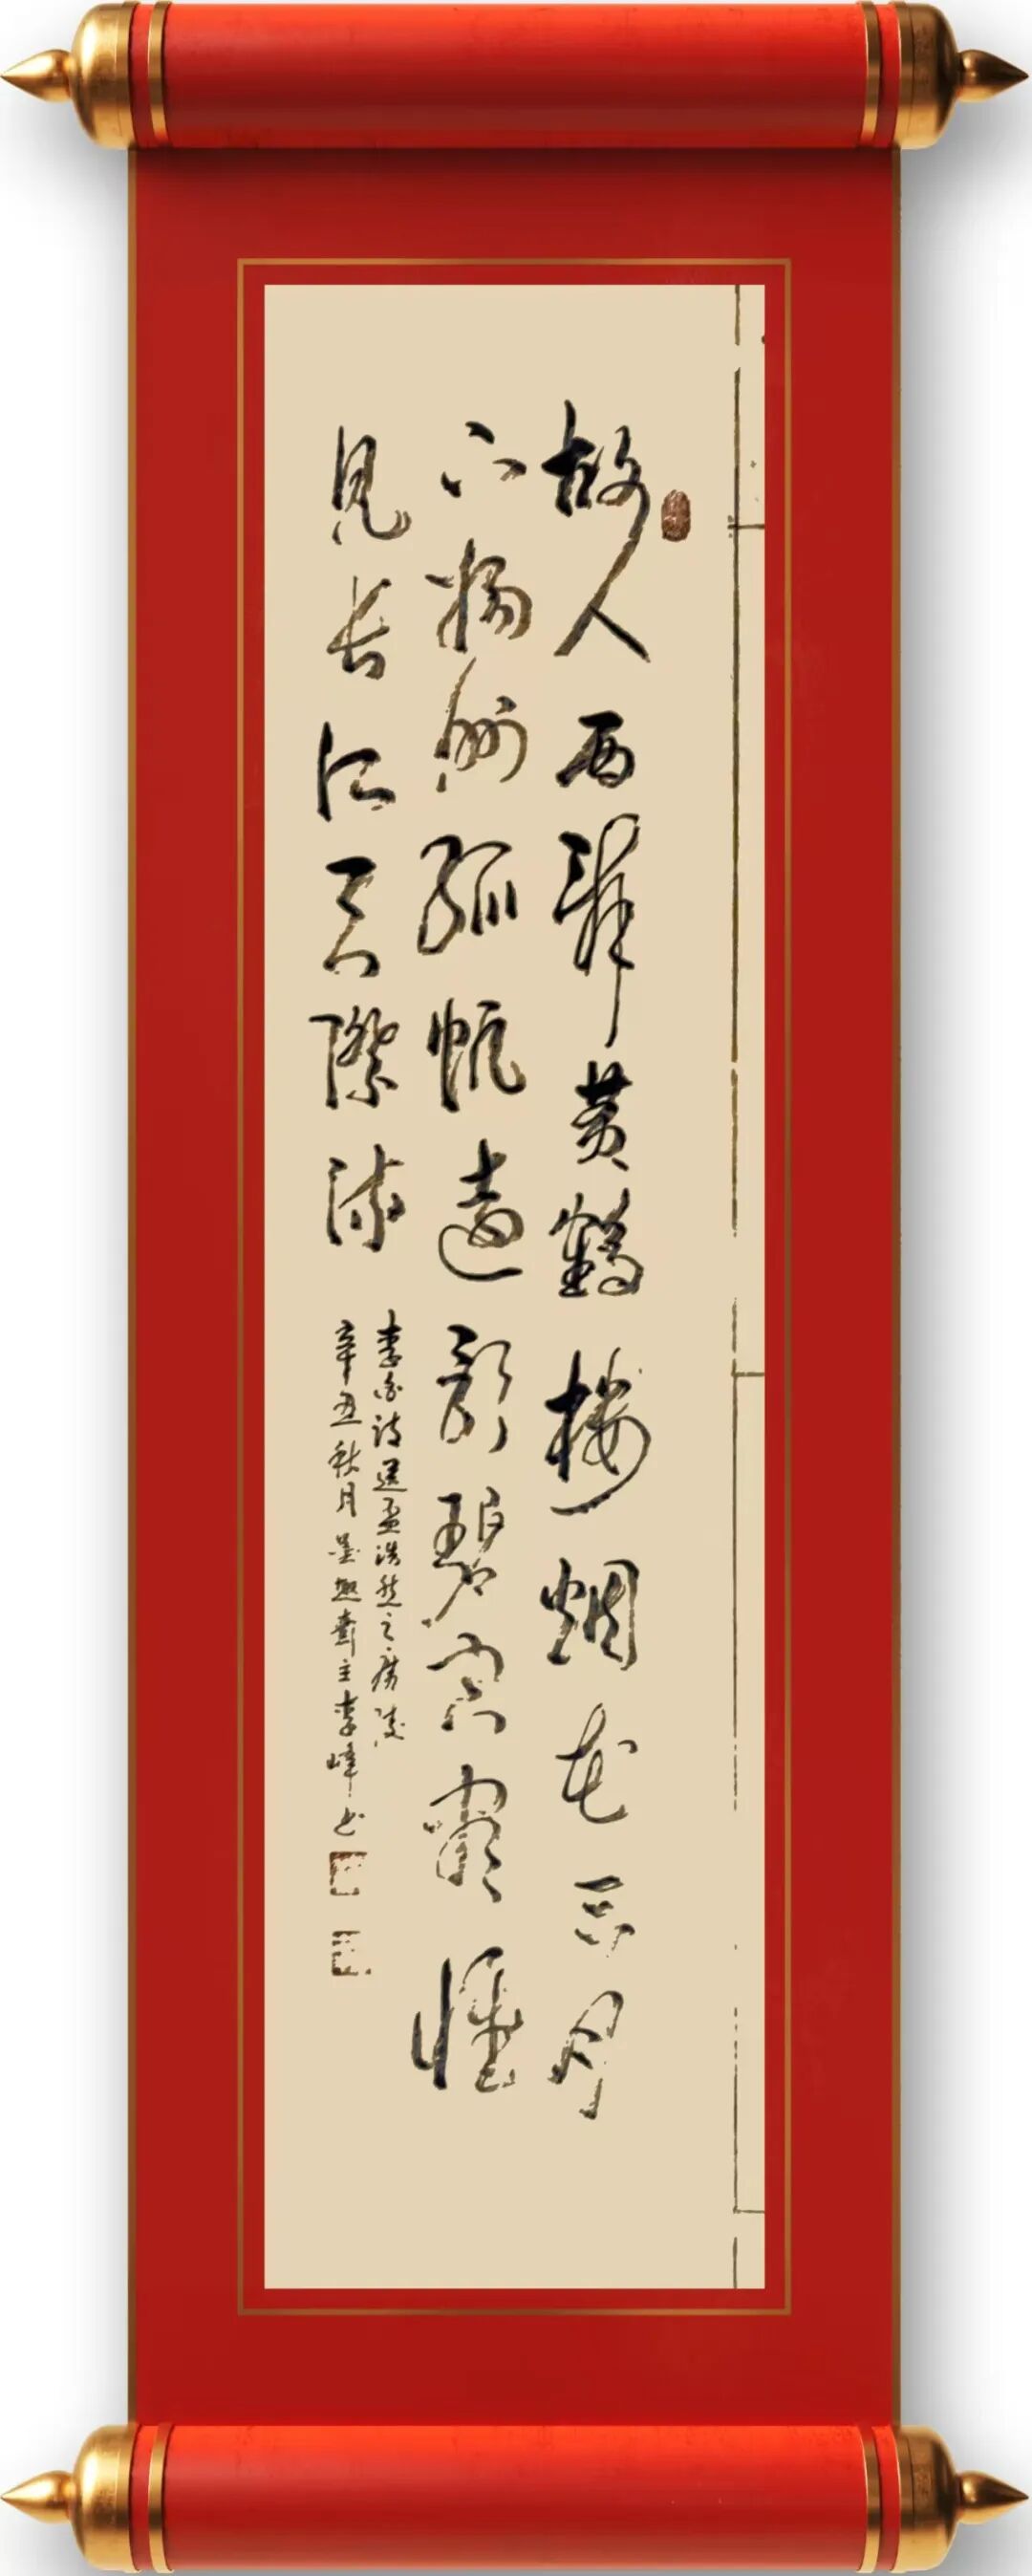 故人西辞黄鹤楼烟花三月
下扬州孤帆远影碧空尽惟
见长江天际流
李白诗送孟浩然之广陵
辛丑秋月墨趣斋主李峰书